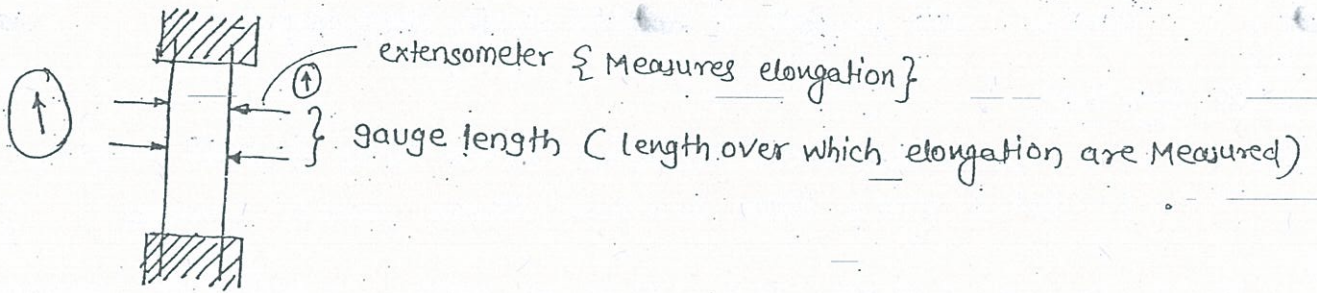 extensometer { Measures elongation }
gauge length ( length over which elongation are Measured )